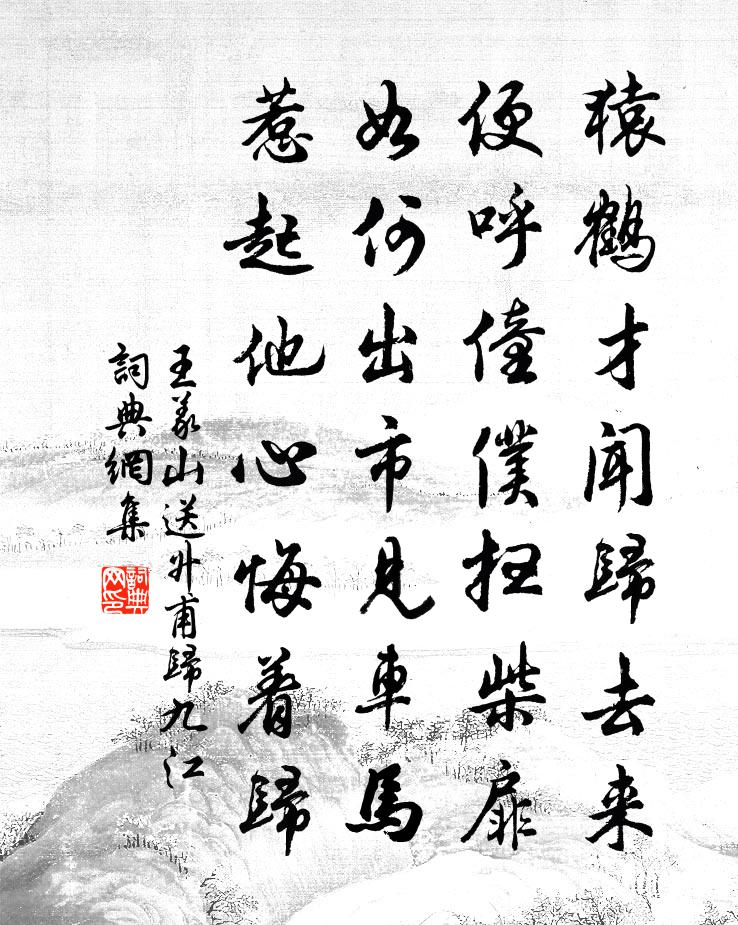 猿鶴才聞歸去来
便呼僮僕掃柴扉
如何出市見車馬
惹起他心悔着歸
王義山送外甫歸九江
詞典網集
詞典
网印